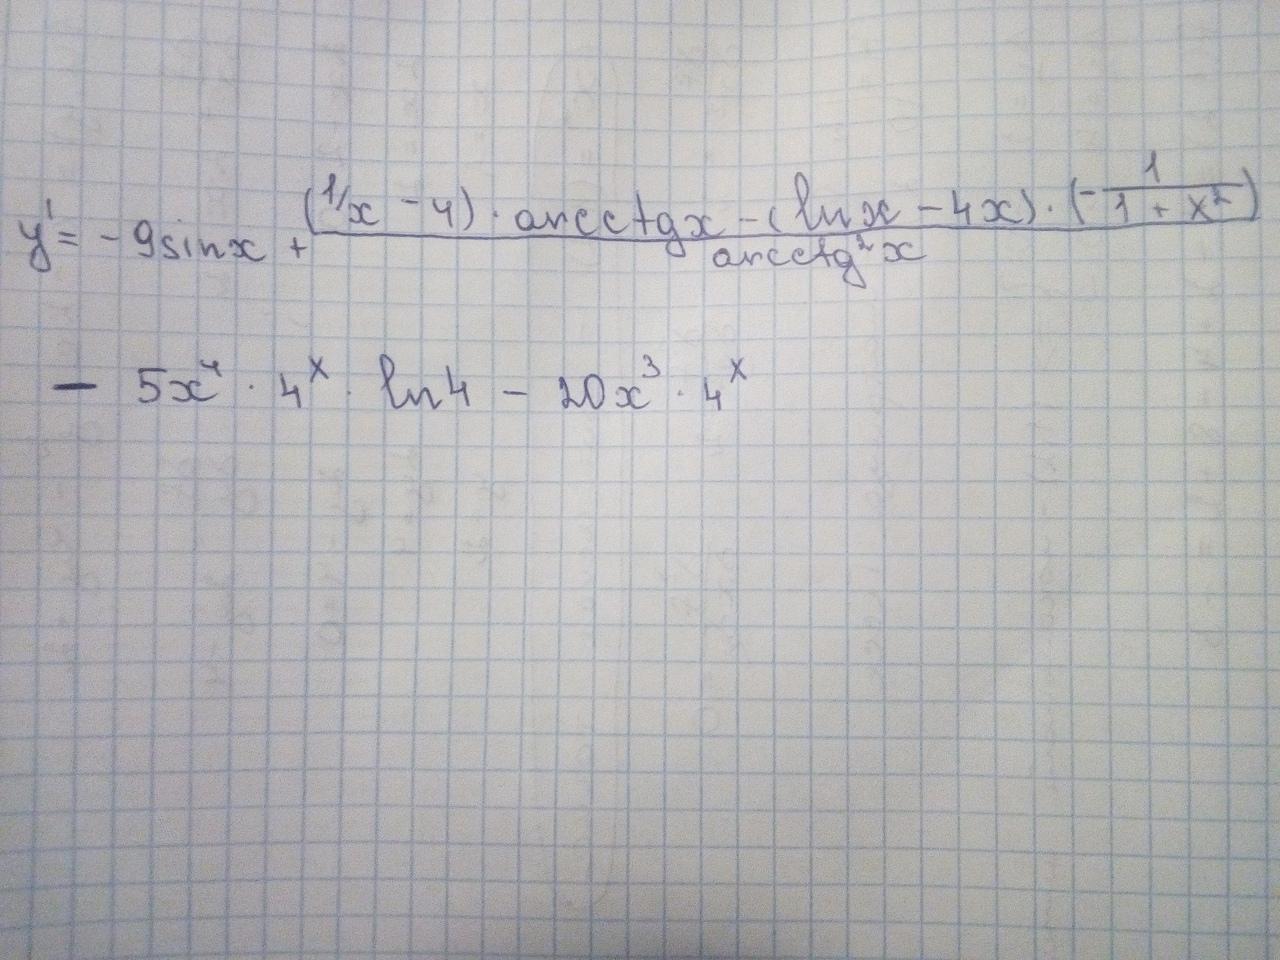 y' = -9sinx + ((1/x - 4) · arcctgx - (lnx - 4x) · (- 1/(1 + x²))) / arcctg²x
- 5x⁴ · 4ˣ · ln4 - 20x³ · 4ˣ